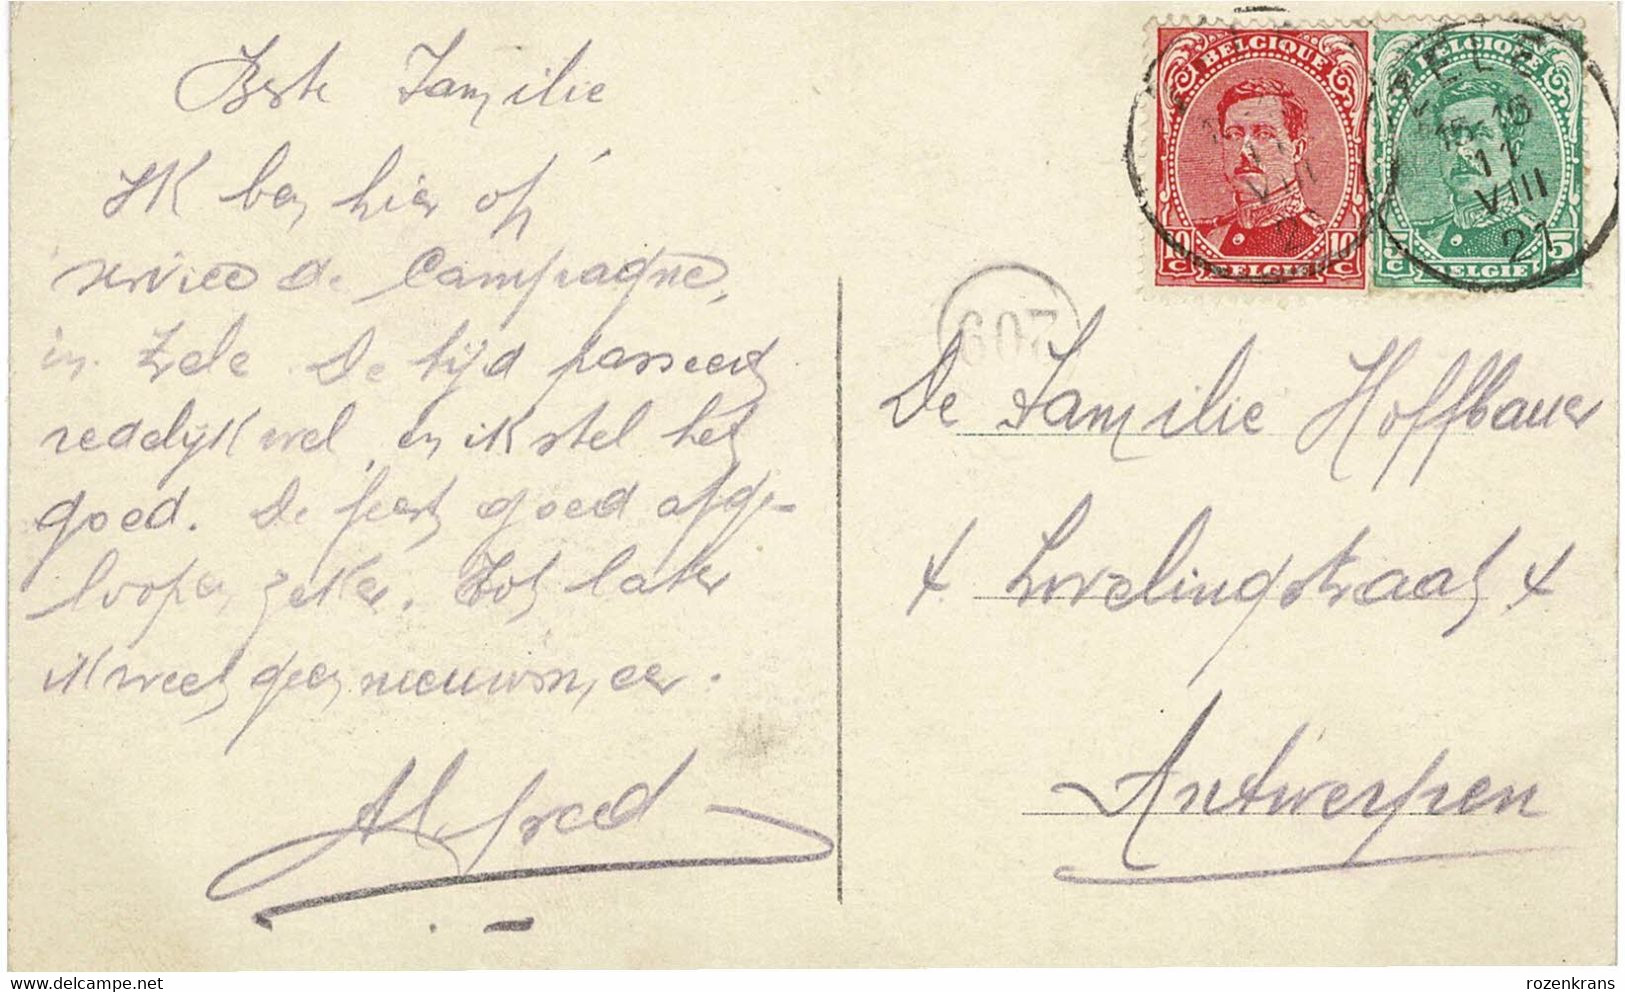 Beste Familie
Ik ben hier op
service de Campagne,
in Zele. De tijd passeert
redelijk wel, en ik stel het
goed. De feest goed afge-
loopen zeker. Tot later
ik weet geen nieuws meer.
Alfred
BELGIQUE
10 C 10 C
BELGIË
BELGIQUE
5 C 5 C
BELGIË
ZELE
15-16
11
VIII
21
209
De Familie Hoffbauer
Lovelingstraat
Antwerpen
rozenkrans